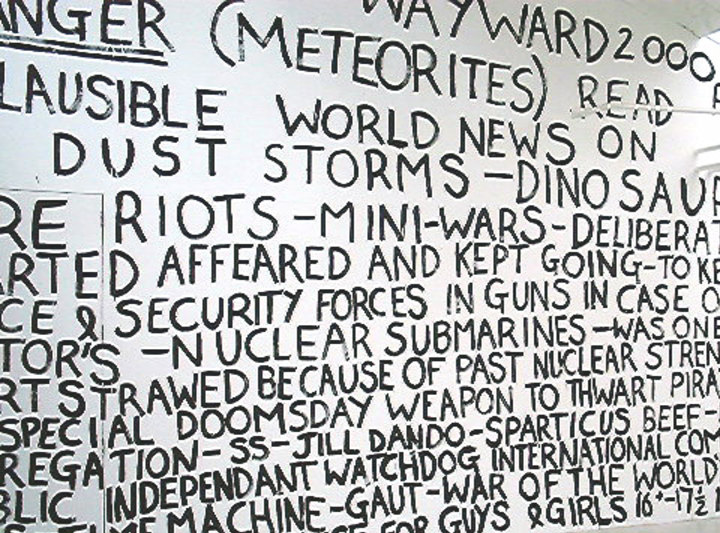 ANGER (METEORITES) WAYWARD 2000
LAUSIBLE WORLD NEWS ON READ
DUST STORMS - DINOSAU
RE RIOTS - MINI-WARS - DELIBERAT
ARTED AFFEARED AND KEPT GOING - TO KE
CE & SECURITY FORCES IN GUNS IN CASE O
TOR'S - NUCLEAR SUBMARINES - WAS ONE
RT STRAWED BECAUSE OF PAST NUCLEAR STREN
SPECIAL DOOMSDAY WEAPON TO THWART PIRA
REGATION - SS - JILL DANDO - SPARTICUS BEEF -
BLIC INDEPENDANT WATCHDOG INTERNATIONAL COM
TIME MACHINE - GAUT - WAR OF THE WORLD
FOR GUYS & GIRLS 16+-17½